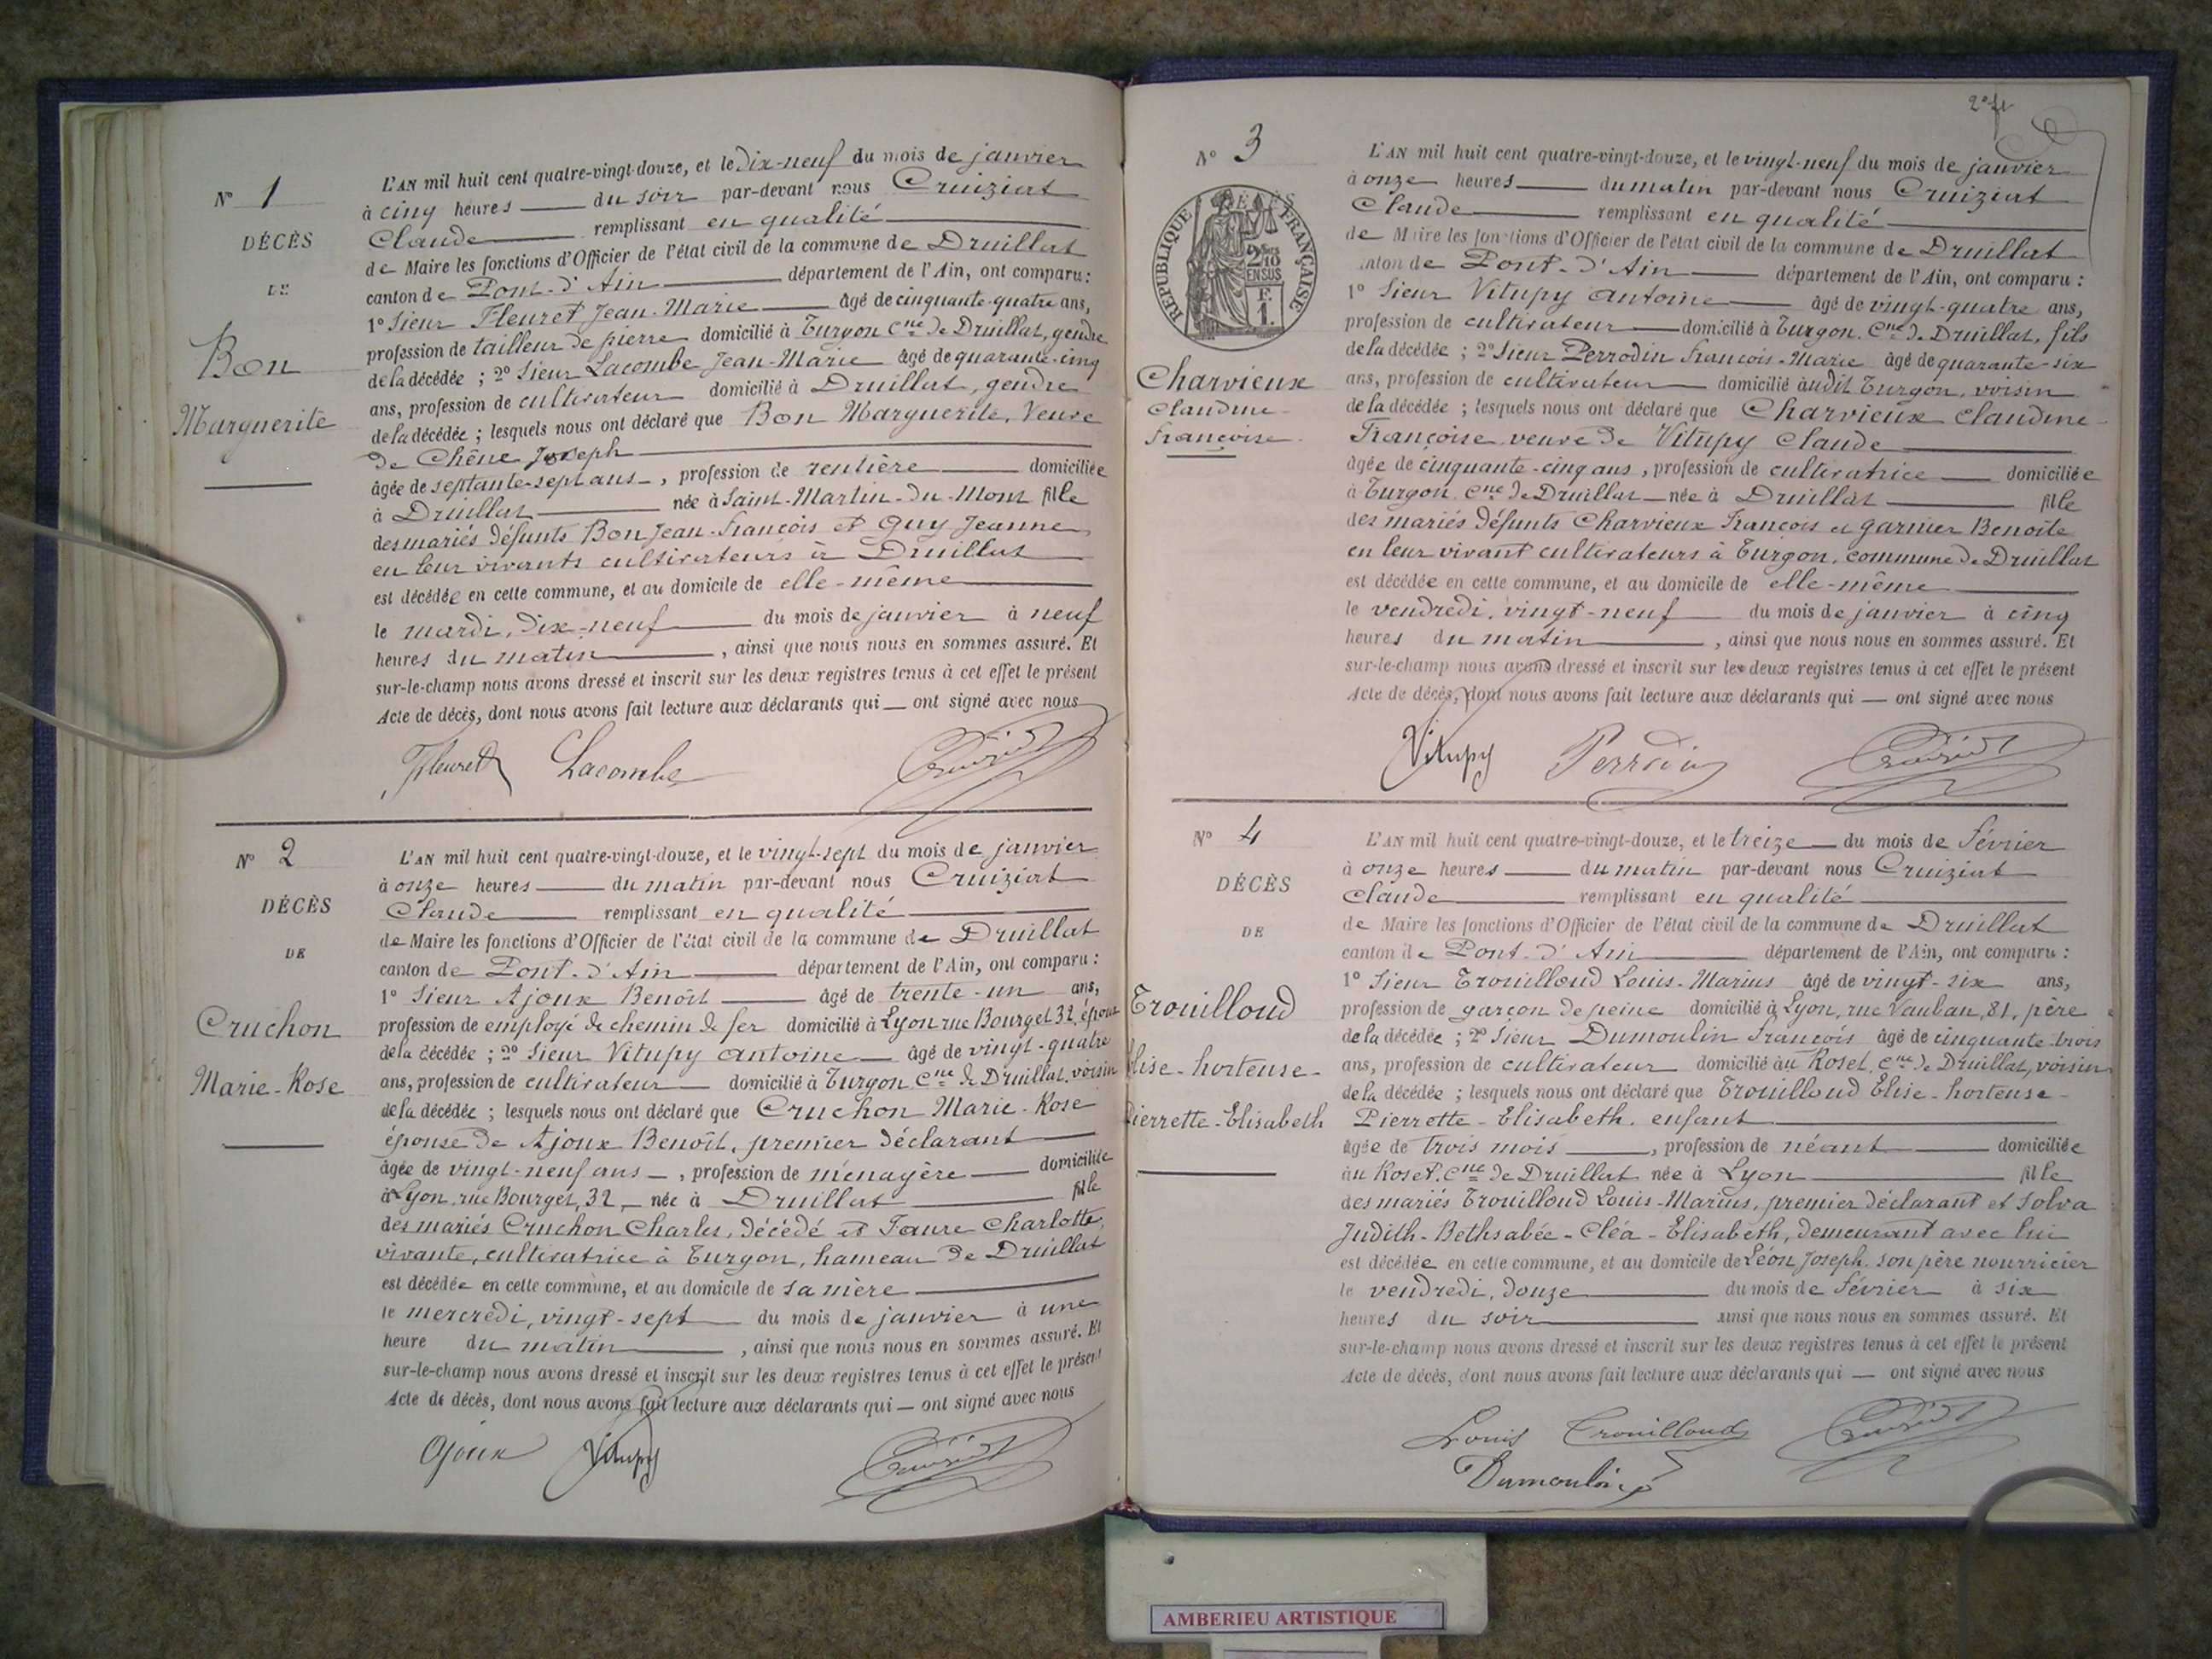 N° 1
DÉCÈS
DE
Bon
Marguerite
L'AN mil huit cent quatre-vingt-douze, et le dix-neuf du mois de janvier
à cinq heures du soir par-devant nous Cruiziat
Claude remplissant en qualité
de Maire les fonctions d'Officier de l'état civil de la commune de Druillat
canton de Pont-d'Ain département de l'Ain, ont comparu :
1° Sieur Fleuret Jean-Marie âgé de cinquante-quatre ans,
profession de tailleur de pierre domicilié à Turgon Cne de Druillat, gendre
de la décédée ; 2° Sieur Lacombe Jean-Marie âgé de quarante-cinq
ans, profession de cultivateur domicilié à Druillat, gendre
de la décédée ; lesquels nous ont déclaré que Bon Marguerite, Veuve
de Chêne Joseph
âgée de septante-sept ans, profession de rentière domiciliée
à Druillat née à Saint-Martin-du-Mont fille
des mariés défunts Bon Jean-François et Guy Jeanne
en leur vivants cultivateurs à Druillat
est décédée en cette commune, et au domicile de elle-même
le mardi, dix-neuf du mois de janvier à neuf
heures du matin, ainsi que nous nous en sommes assuré. Et
sur-le-champ nous avons dressé et inscrit sur les deux registres tenus à cet effet le présent
Acte de décès, dont nous avons fait lecture aux déclarants qui — ont signé avec nous
Fleuret Lacombe Cruiziat
N° 2
DÉCÈS
DE
Cruchon
Marie-Rose
L'AN mil huit cent quatre-vingt-douze, et le vingt-sept du mois de janvier
à onze heures du matin par-devant nous Cruiziat
Claude remplissant en qualité
de Maire les fonctions d'Officier de l'état civil de la commune de Druillat
canton de Pont-d'Ain département de l'Ain, ont comparu :
1° Sieur Ajoux Benoît âgé de trente-un ans,
profession de employé de chemin de fer domicilié à Lyon rue Bourget 32, époux
de la décédée ; 2° Sieur Vitupy Antoine âgé de vingt-quatre
ans, profession de cultivateur domicilié à Turgon Cne de Druillat, voisin
de la décédée ; lesquels nous ont déclaré que Cruchon Marie-Rose
épouse de Ajoux Benoît, premier déclarant
âgée de vingt-neuf ans, profession de ménagère domiciliée
à Lyon, rue Bourget, 32, née à Druillat fille
des mariés Cruchon Charles, décédé et Faure Charlotte,
vivante, cultivatrice à Turgon, hameau de Druillat
est décédée en cette commune, et au domicile de sa mère
le mercredi, vingt-sept du mois de janvier à une
heure du matin, ainsi que nous nous en sommes assuré. Et
sur-le-champ nous avons dressé et inscrit sur les deux registres tenus à cet effet le présent
Acte de décès, dont nous avons fait lecture aux déclarants qui — ont signé avec nous
Ajoux Vitupy Cruiziat
N° 3
RÉPUBLIQUE FRANÇAISE
Charvieux
Claudine
Françoise
L'AN mil huit cent quatre-vingt-douze, et le vingt-neuf du mois de janvier
à onze heures du matin par-devant nous Cruiziat
Claude remplissant en qualité
de Maire les fonctions d'Officier de l'état civil de la commune de Druillat
canton de Pont-d'Ain département de l'Ain, ont comparu :
1° Sieur Vitupy Antoine âgé de vingt-quatre ans,
profession de cultivateur domicilié à Turgon, Cne de Druillat, fils
de la décédée ; 2° Sieur Perrodin François-Marie âgé de quarante-six
ans, profession de cultivateur domicilié audit Turgon, voisin
de la décédée ; lesquels nous ont déclaré que Charvieux Claudine
Françoise veuve de Vitupy Claude
âgée de cinquante-cinq ans, profession de cultivatrice domiciliée
à Turgon Cne de Druillat née à Druillat fille
des mariés défunts Charvieux François et Garnier Benoite
en leur vivant cultivateurs à Turgon, commune de Druillat
est décédée en cette commune, et au domicile de elle-même
le vendredi, vingt-neuf du mois de janvier à cinq
heures du matin, ainsi que nous nous en sommes assuré. Et
sur-le-champ nous avons dressé et inscrit sur les deux registres tenus à cet effet le présent
Acte de décès, dont nous avons fait lecture aux déclarants qui — ont signé avec nous
Vitupy Perrodin Cruiziat
N° 4
DÉCÈS
DE
Trouilloud
Elise-hortense-
Pierrette-Elisabeth
L'AN mil huit cent quatre-vingt-douze, et le treize du mois de février
à onze heures du matin par-devant nous Cruiziat
Claude remplissant en qualité
de Maire les fonctions d'Officier de l'état civil de la commune de Druillat
canton de Pont-d'Ain département de l'Ain, ont comparu :
1° Sieur Trouilloud Louis-Marius âgé de vingt-six ans,
profession de garçon de peine domicilié à Lyon, rue Vauban, 81, père
de la décédée ; 2° Sieur Dumoulin François âgé de cinquante-trois
ans, profession de cultivateur domicilié au Roset, Cne de Druillat, voisin
de la décédée ; lesquels nous ont déclaré que Trouilloud Elise-hortense-
Pierrette-Elisabeth, enfant
âgée de trois mois, profession de néant domiciliée
au Roset, Cne de Druillat née à Lyon fille
des mariés Trouilloud Louis-Marius, premier déclarant et Solva
Judith-Bethsabée-Cléa-Elisabeth, demeurant avec lui
est décédée en cette commune, et au domicile de Léon Joseph, son père nourricier
le vendredi, douze du mois de février à six
heures du soir ainsi que nous nous en sommes assuré. Et
sur-le-champ nous avons dressé et inscrit sur les deux registres tenus à cet effet le présent
Acte de décès, dont nous avons fait lecture aux déclarants qui — ont signé avec nous
Louis Trouilloud Cruiziat
Dumoulin
AMBERIEU ARTISTIQUE